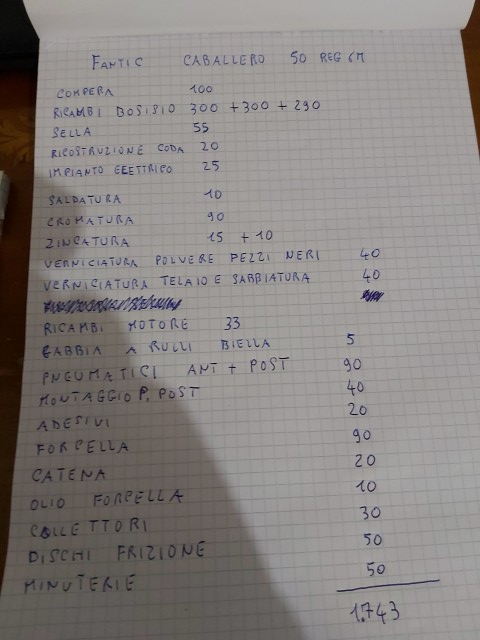 FANTIC CABALLERO 50 REG 6M
COMPERA 100
RICAMBI BOSISIO 300 + 300 + 290
SELLA 55
RICOSTRUZIONE CODA 20
IMPIANTO ELETTRICO 25
SALDATURA 10
CROMATURA 90
ZINCATURA 15 + 10
VERNICIATURA POLVERE PEZZI NERI 40
VERNICIATURA TELAIO E SABBIATURA 40
RICAMBI MOTORE 33
GABBIA A RULLI BIELLA 5
PNEUMATICI ANT + POST 90
MONTAGGIO P. POST 40
ADESIVI 20
FORCELLA 90
CATENA 20
OLIO FORCELLA 10
COLLETTORI 30
DISCHI FRIZIONE 50
MINUTERIE 50
1.743